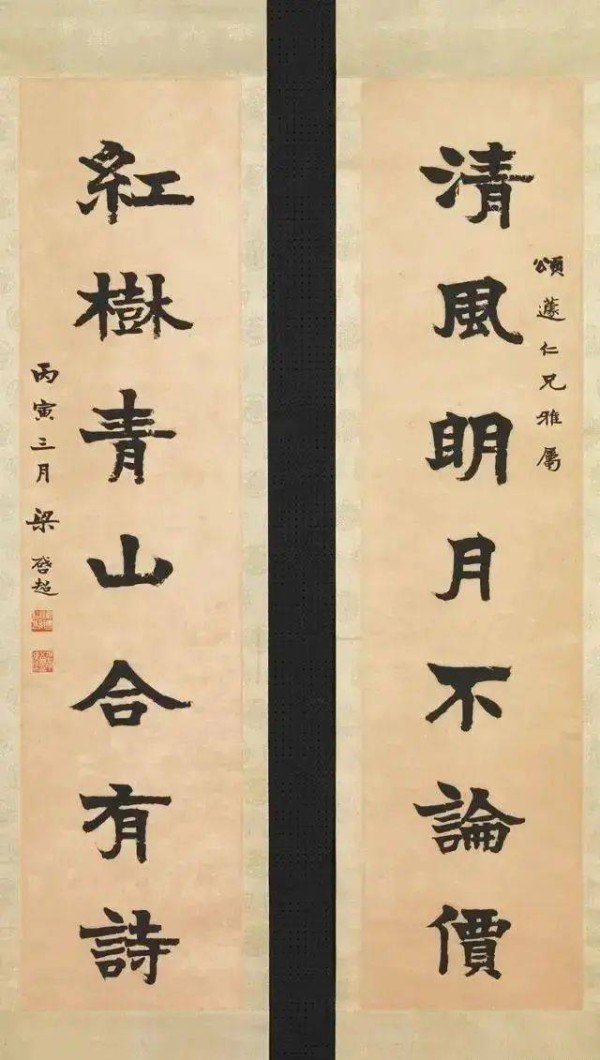 清風明月不論價
頌蘧仁兄雅屬
紅樹青山合有詩
丙寅三月 梁啓超